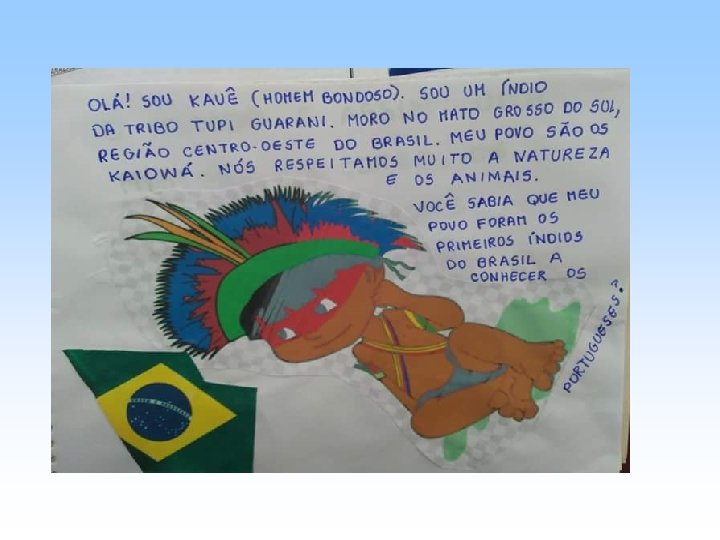 OLÁ! SOU KAUÊ (HOMEM BONDOSO). SOU UM ÍNDIO
DA TRIBO TUPI GUARANI. MORO NO MATO GROSSO DO SUL,
REGIÃO CENTRO-OESTE DO BRASIL. MEU POVO SÃO OS
KAIOWÁ. NÓS RESPEITAMOS MUITO A NATUREZA
E OS ANIMAIS.
VOCÊ SABIA QUE MEU
POVO FORAM OS
PRIMEIROS ÍNDIOS
DO BRASIL A
CONHECER OS
PORTUGUESES?